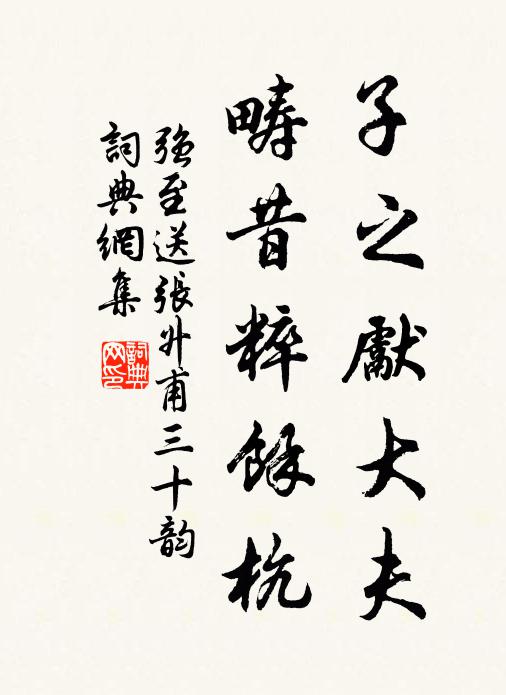 子之獻大夫
疇昔粹餘杭
強至送張升甫三十韵
詞典網集
詞典网印